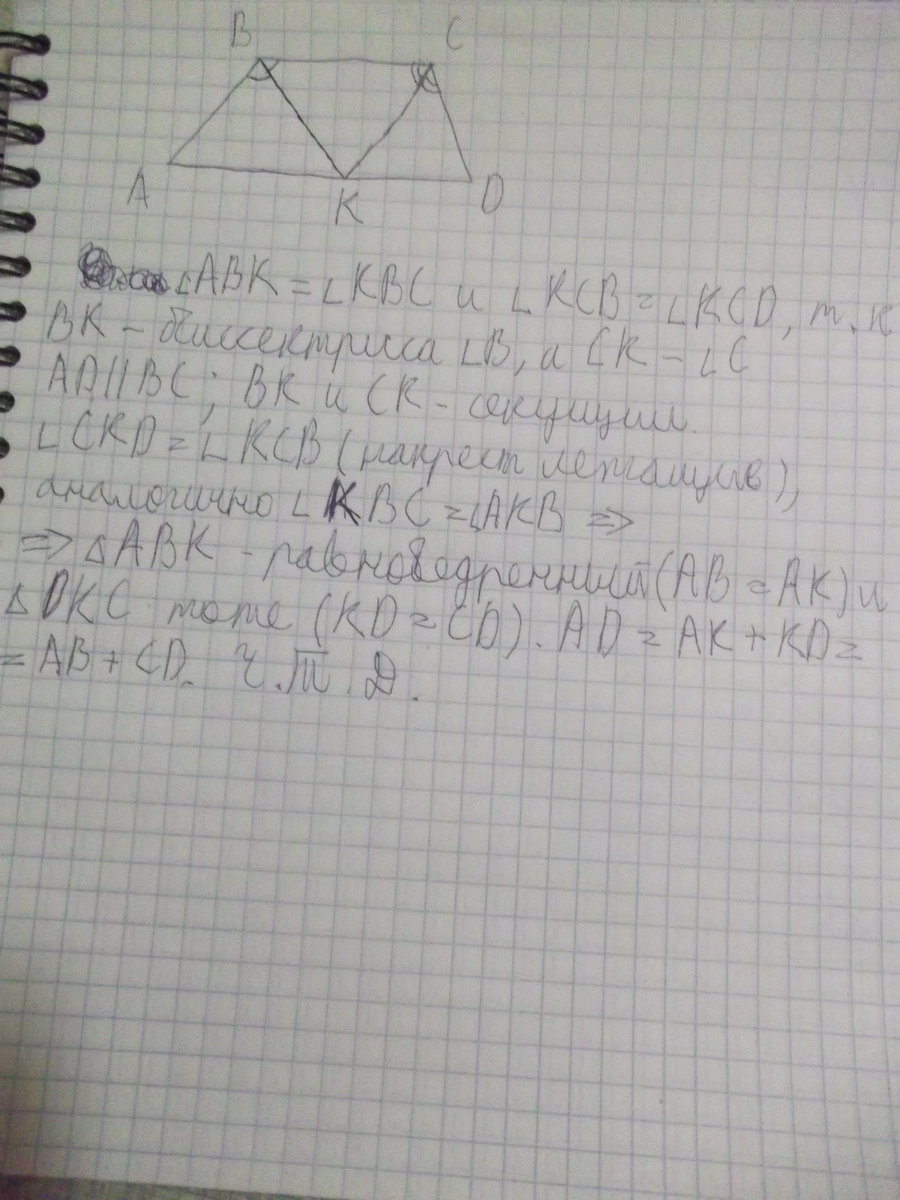 B C
A K D
∠ABK = ∠KBC и ∠KCB = ∠KCD, т.к
BK - биссектриса ∠B, а CK - ∠C
AD||BC; BK и CK - секущии.
∠CKD = ∠KCB (накрест лежащие),
аналогично ∠KBC = ∠AKB =>
=> △ABK - равнобедренный (AB = AK) и
△DKC тоже (KD = CD). AD = AK + KD =
= AB + CD. Ч.Т.Д.